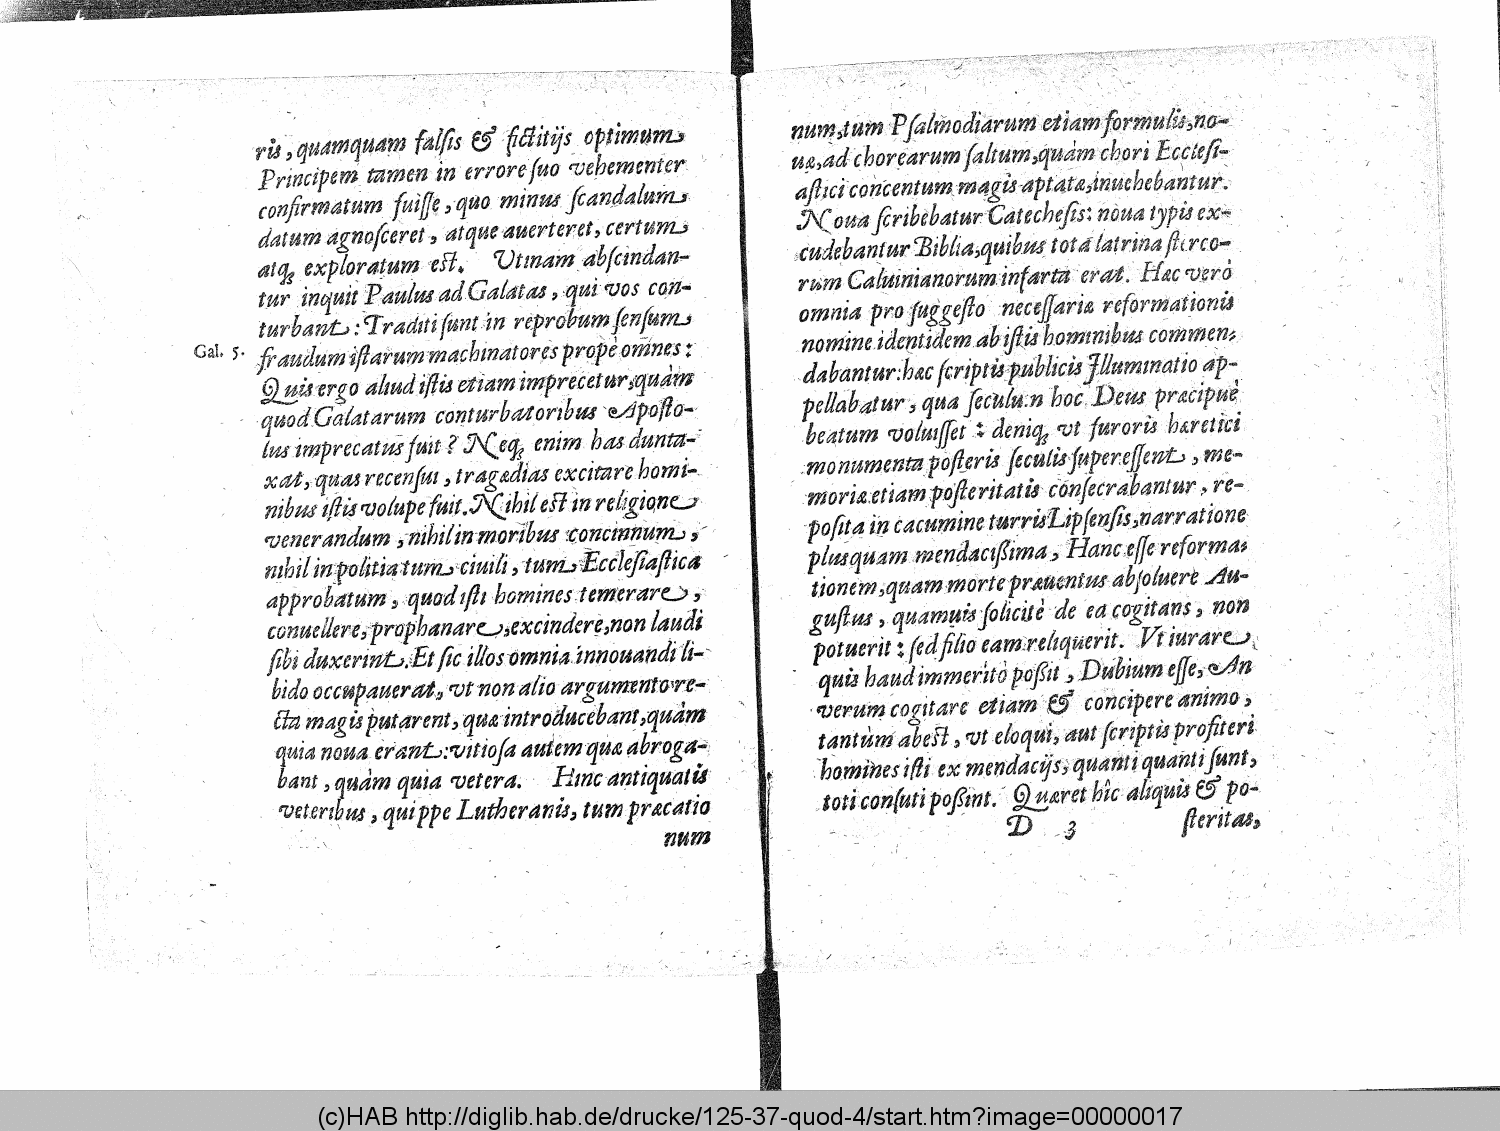 ris, quamquam falſis & fictitijs optimum
Principem tamen in errore ſuo vehementer
confirmatum fuiſſe, quo minus ſcandalum
datum agnoſceret, atque auerteret, certum
atq; exploratum eſt. Vtinam abſcindan-
tur inquit Paulus ad Galatas, qui vos con-
turbant: Traditi ſunt in reprobum ſenſum
Gal. 5. fraudum iſtarum machinatores propè omnes:
Quis ergo aliud iſtis etiam imprecetur, quàm
quod Galatarum conturbatoribus Apoſto-
lus imprecatus fuit? Neq; enim has dunta-
xat, quas recenſui, tragædias excitare homi-
nibus iſtis volupe fuit. Nihil eſt in religione
venerandum, nihil in moribus concinnum,
nihil in politia tum ciuili, tum Eccleſiaſtica
approbatum, quod iſti homines temerare,
conuellere, prophanare, excindere, non laudi
ſibi duxerint. Et ſic illos omnia innouandi li-
bido occupauerat, vt non alio argumento re-
cta magis putarent, quæ introducebant, quàm
quia noua erant: vitioſa autem quæ abroga-
bant, quàm quia vetera. Hinc antiquatis
veteribus, quippe Lutheranis, tum præcatio
num
num, tum Pſalmodiarum etiam formulis, no-
uæ, ad chorearum ſaltum, quàm chori Eccleſi-
aſtici concentum magis aptatæ, inuehebantur.
Noua ſcribebatur Catecheſis: noua typis ex-
cudebantur Biblia, quibus tota latrina ſterco-
rum Caluinianorum infarta erat. Hæc verò
omnia pro ſuggeſto neceſſariæ reformationis
nomine identidem ab iſtis hominibus commen-
dabantur: hæc ſcriptis publicis Illuminatio ap-
pellabatur, qua ſeculum hoc Deus præcipuè
beatum voluiſſet: deniq; vt furoris hæretici
monumenta poſteris ſeculis ſupereſſent, me-
moriæ etiam poſteritatis conſecrabantur, re-
poſita in cacumine turris Lipſenſis, narratione
plusquam mendacißima, Hanc eſſe reforma-
tionem, quam morte præuentus abſoluere Au-
guſtus, quamuis ſolicitè de ea cogitans, non
potuerit: ſed filio eam reliquerit. Vt iurare
quis haud immeritò poßit, Dubium eſſe, An
verum cogitare etiam & concipere animo,
tantùm abeſt, vt eloqui, aut ſcriptis profiteri
homines iſti ex mendacijs, quanti quanti ſunt,
toti conſuti poßint. Quæret hîc aliquis & po-
D 3 ſteritas,
(c)HAB http://diglib.hab.de/drucke/125-37-quod-4/start.htm?image=00000017